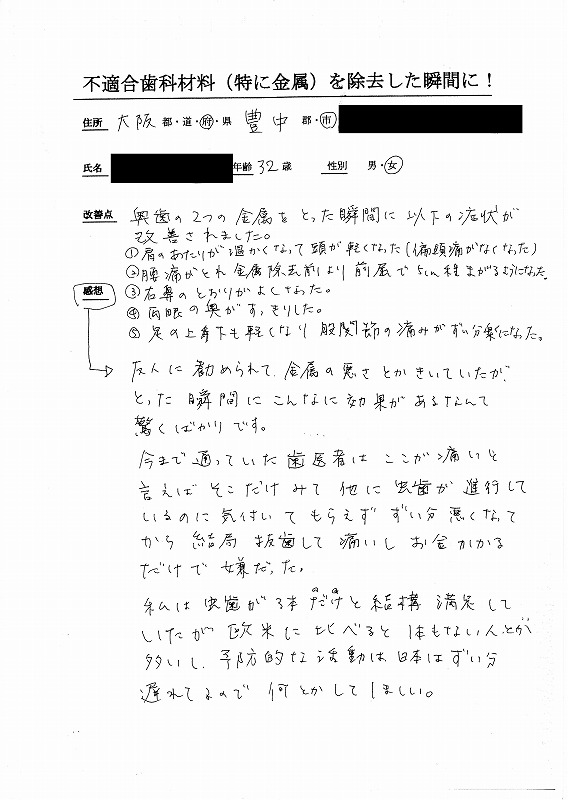 不適合歯科材料（特に金属）を除去した瞬間に！
住所 大阪 都・道・府・県 豊中 郡・市
氏名 年齢 32 歳 性別 男・女
改善点 奥歯の2つの金属をとった瞬間に以下の症状が
改善されました。
①肩のあたりが温かくなって頭が軽くなった(偏頭痛がなくなった)
②腰痛がとれ金属除去前より前屈で5cm程まがるようになった
感想 ③右鼻のとおりがよくなった。
④両眼の奥がすっきりした。
⑤足の上げ下も軽くなり股関節の痛みがずい分楽になった。
友人に勧められて、金属の悪さとかきいていたが、
とった瞬間にこんなに効果があるなんて
驚くばかりです。
今まで通っていた歯医者はここが痛いと
言えばそこだけみて他に虫歯が進行して
いるのに気付いてもらえずずい分悪くなって
から結局抜歯して痛いしお金かかる
だけで嫌だった。
私は虫歯が3本だけと結構満足して
いたが欧米に比べると1本もない人とかが
多いし、予防的な活動は日本はずい分
遅れてるので何とかしてほしい。